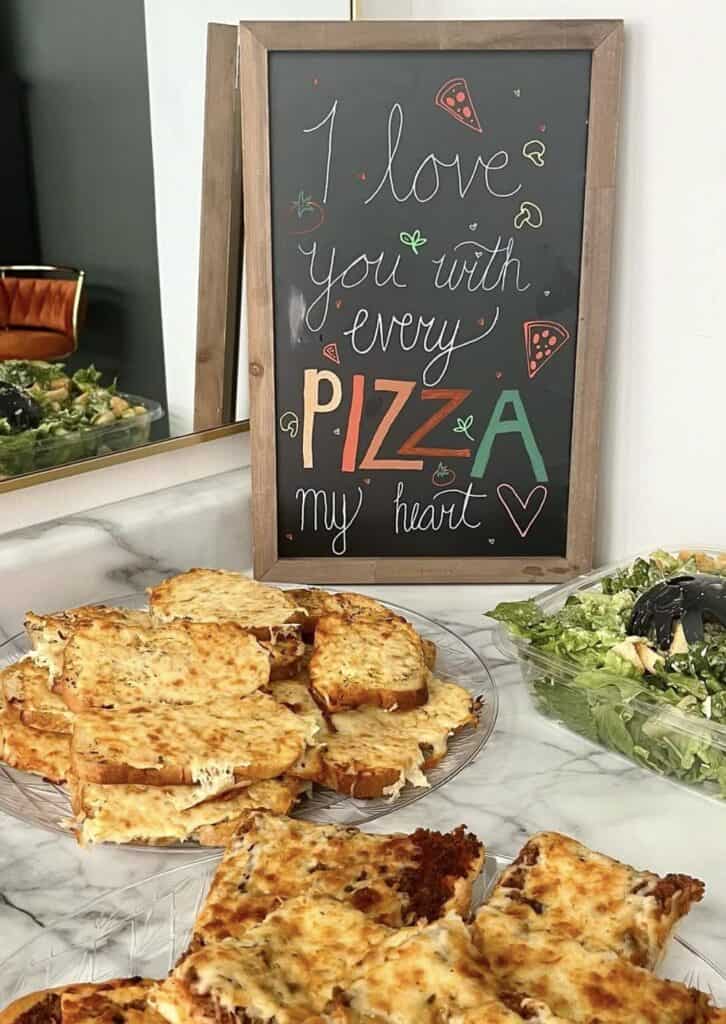 I love
you with
every
PIZZA
my heart